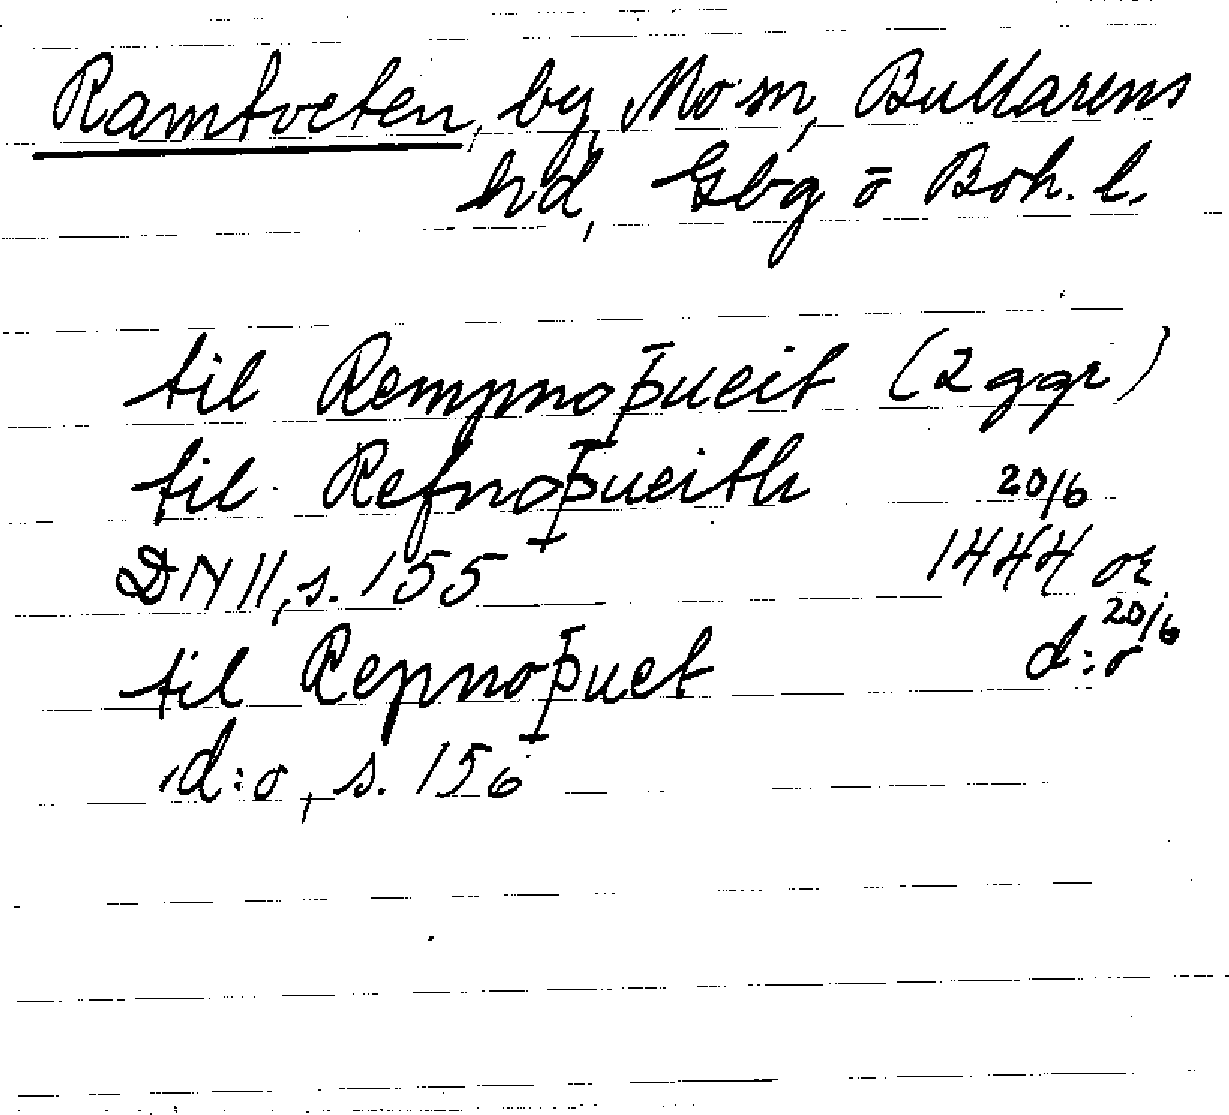 Ramtveten, by, Mo sn, Bullarens
hd, Gbg o Boh. l.
til Rempnoþueit (2 ggr)
til Refnoþueith 20/6
DN II, s. 155 1444 or
til Repnoþuet d:o 20/6
d:o, s. 156